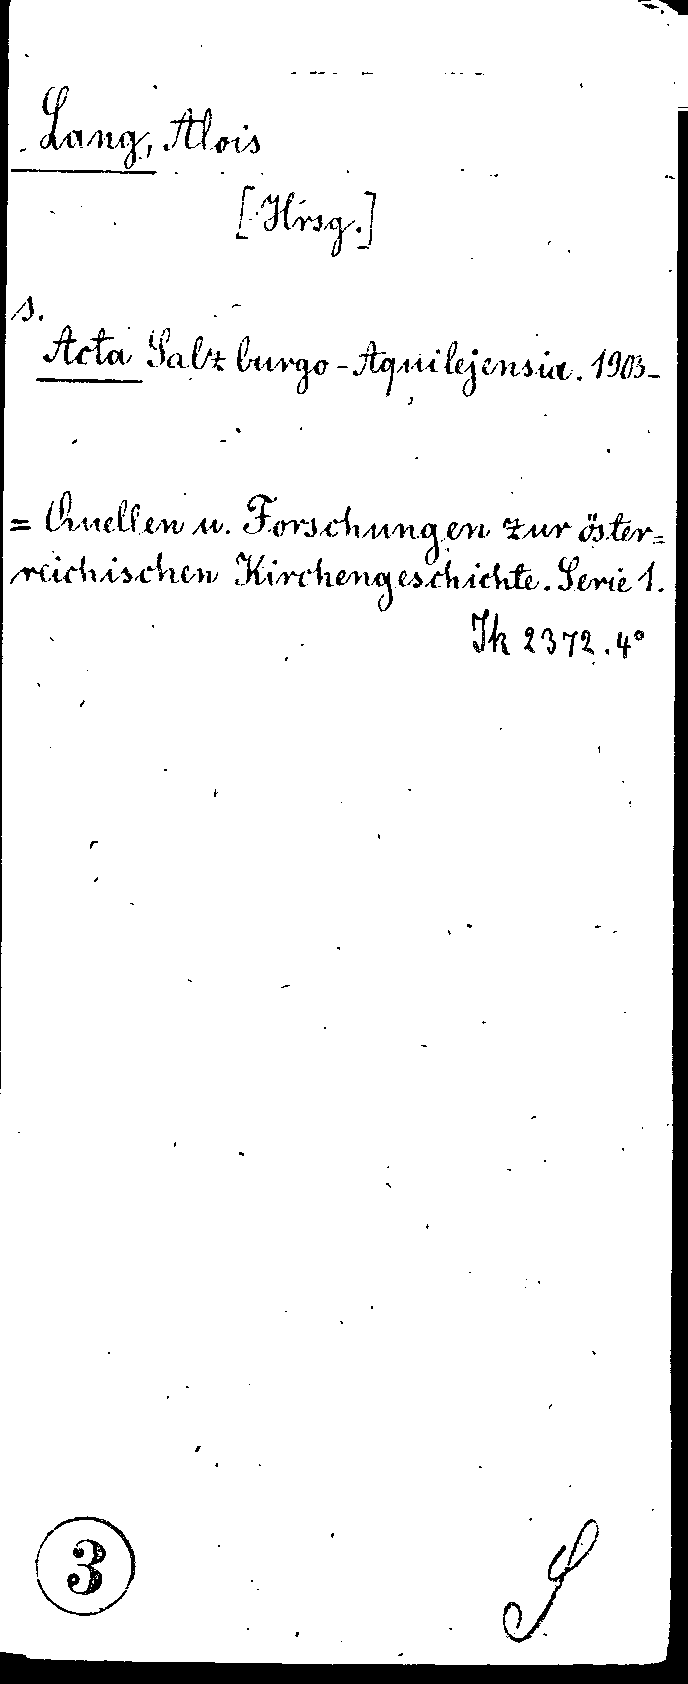 Lang, Alois
[Hrsg.]
s.
Acta Salzburgo-Aquilejensia. 1903-
= Quellen u. Forschungen zur öster=
reichischen Kirchengeschichte. Serie 1.
Ik 2372.4°
3
S